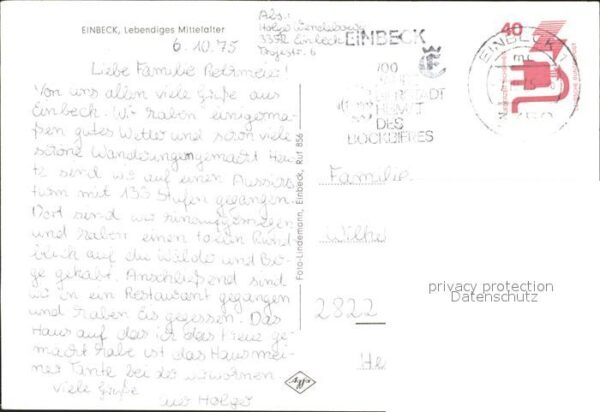 EINBECK, Lebendiges Mittelalter
6.10.75
Abs.:
Holger
3352 Einbeck
Liebe Familie
Von uns allen viele Grüße aus
Einbeck. Wir haben einigerma-
ßen gutes Wetter und schon viele
schöne Wanderungen gemacht. Heu-
te sind wir auf einen Aussichts
turm mit 135 Stufen gegangen.
Dort sind wir hinaufgestiegen
und haben einen tollen Rund
blick auf die Wälder und Ber-
ge gehabt. Anschließend sind
wir in ein Restaurant gegangen
und haben Eis gegessen. Das
Haus auf das ich das Kreuz ge-
macht habe ist das Haus mei-
ner Tante bei der wir wohnen.
Viele Grüße
euer Holger
Foto-Lindemann, Einbeck, Ruf 856
Agfa
EINBECK
HEIMAT
DES
BOCKBIERES
EINBECK 1
40
Familie
2822
privacy protection
Datenschutz